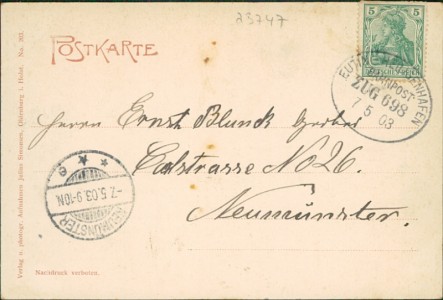 23747
POSTKARTE
5
DEUTSCHES REICH
BAHNPOST
ZUG 698
7 5 03
Herrn Ernst Blunck
No 26.
Neumünster.
NEUMÜNSTER
-7.5.03.9-10N.
Verlag u. photogr. Aufnahmen Julius Simonsen, Oldenburg i. Holst. No. 302.
Nachdruck verboten.